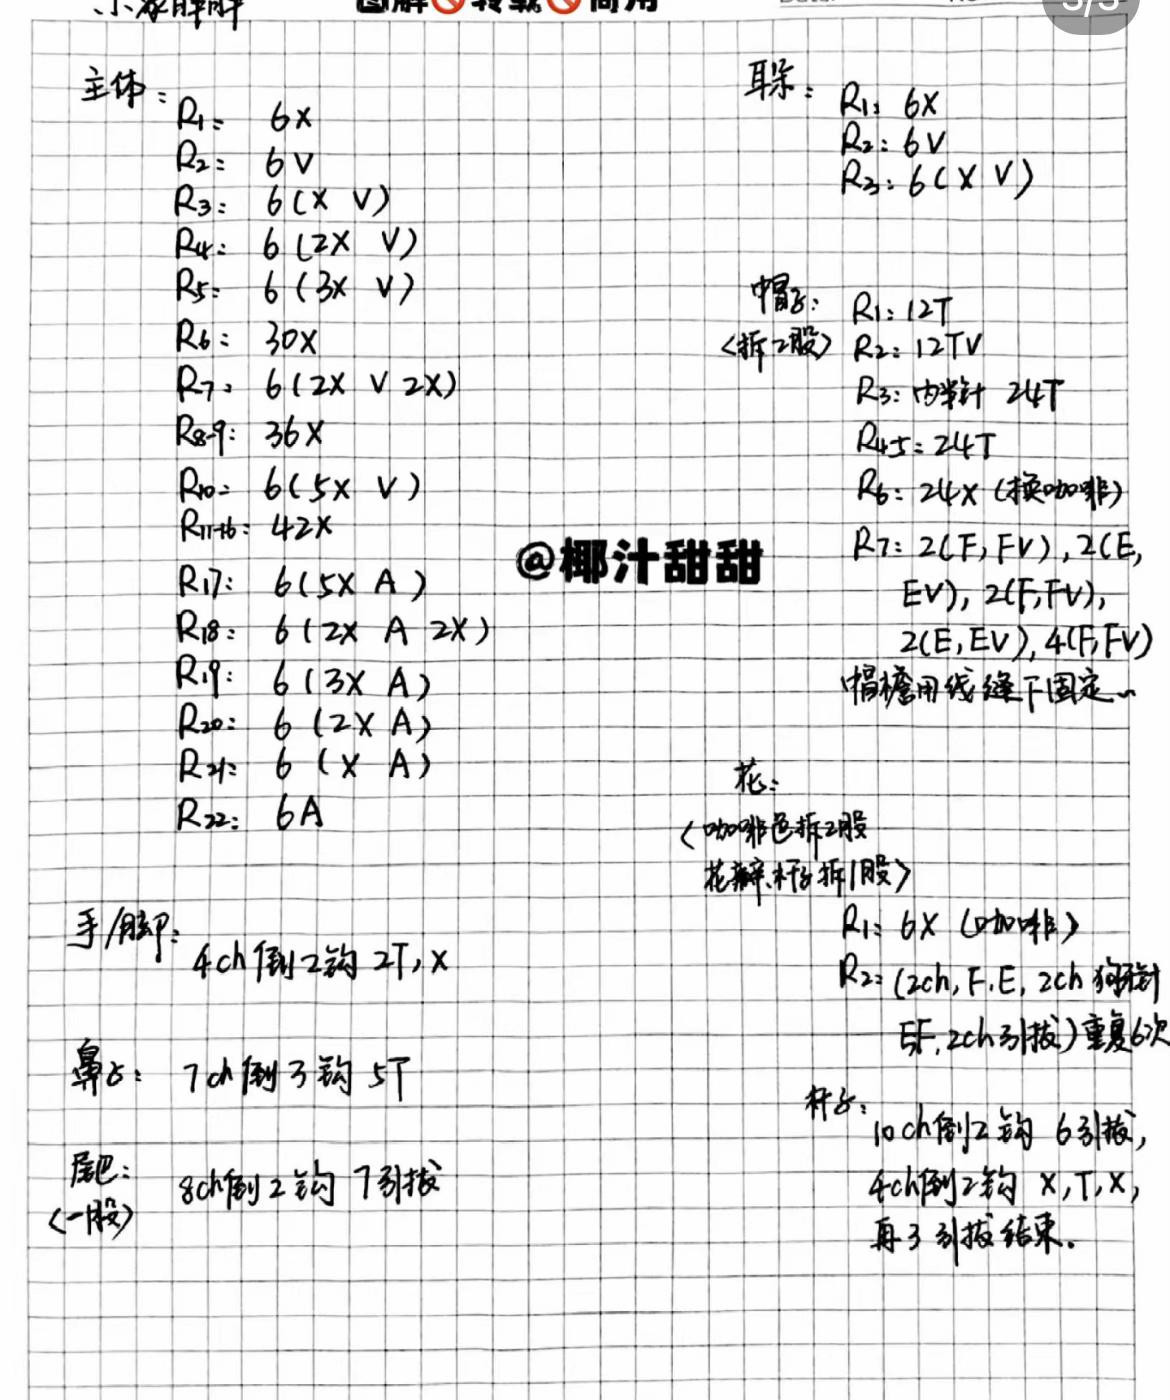 图解🚫转载🚫商用
3/3
主体:
R1: 6X
R2: 6V
R3: 6(X V)
R4: 6(2X V)
R5: 6(3X V)
R6: 30X
R7: 6(2X V 2X)
R8-9: 36X
R10: 6(5X V)
R11-16: 42X
R17: 6(5X A)
R18: 6(2X A 2X)
R19: 6(3X A)
R20: 6(2X A)
R21: 6(X A)
R22: 6A
手/脚:
4ch倒2钩 2T,X
鼻子: 7ch倒3钩 5T
尾巴: 8ch倒2钩 7引拔
<一股>
耳朵:
R1: 6X
R2: 6V
R3: 6(X V)
帽子: R1: 12T
<拆2股> R2: 12TV
R3: 内半针 24T
R4-5: 24T
R6: 24X (换咖啡)
R7: 2(F,FV),2(E,
EV),2(F,FV),
2(E,EV),4(F,FV)
帽檐用线缝下固定~
@椰汁甜甜
花:
<咖啡色拆2股
花瓣、杆子拆1股>
R1: 6X (咖啡)
R2: (2ch,F.E,2ch狗牙针
EF,2ch引拔)重复6次
杆子:
10ch倒2钩 6引拔,
4ch倒2钩 X,T,X,
再3引拔结束.